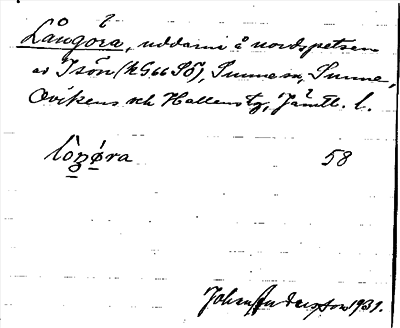 Långöra, uddarni å nordspetsen
av Isön (h G66 SÖ), Sunne sn, Sunne,
Ovikens och Hallens tg, Jämtl. l.
lòŋøra 58
Johan Andersson 1939.